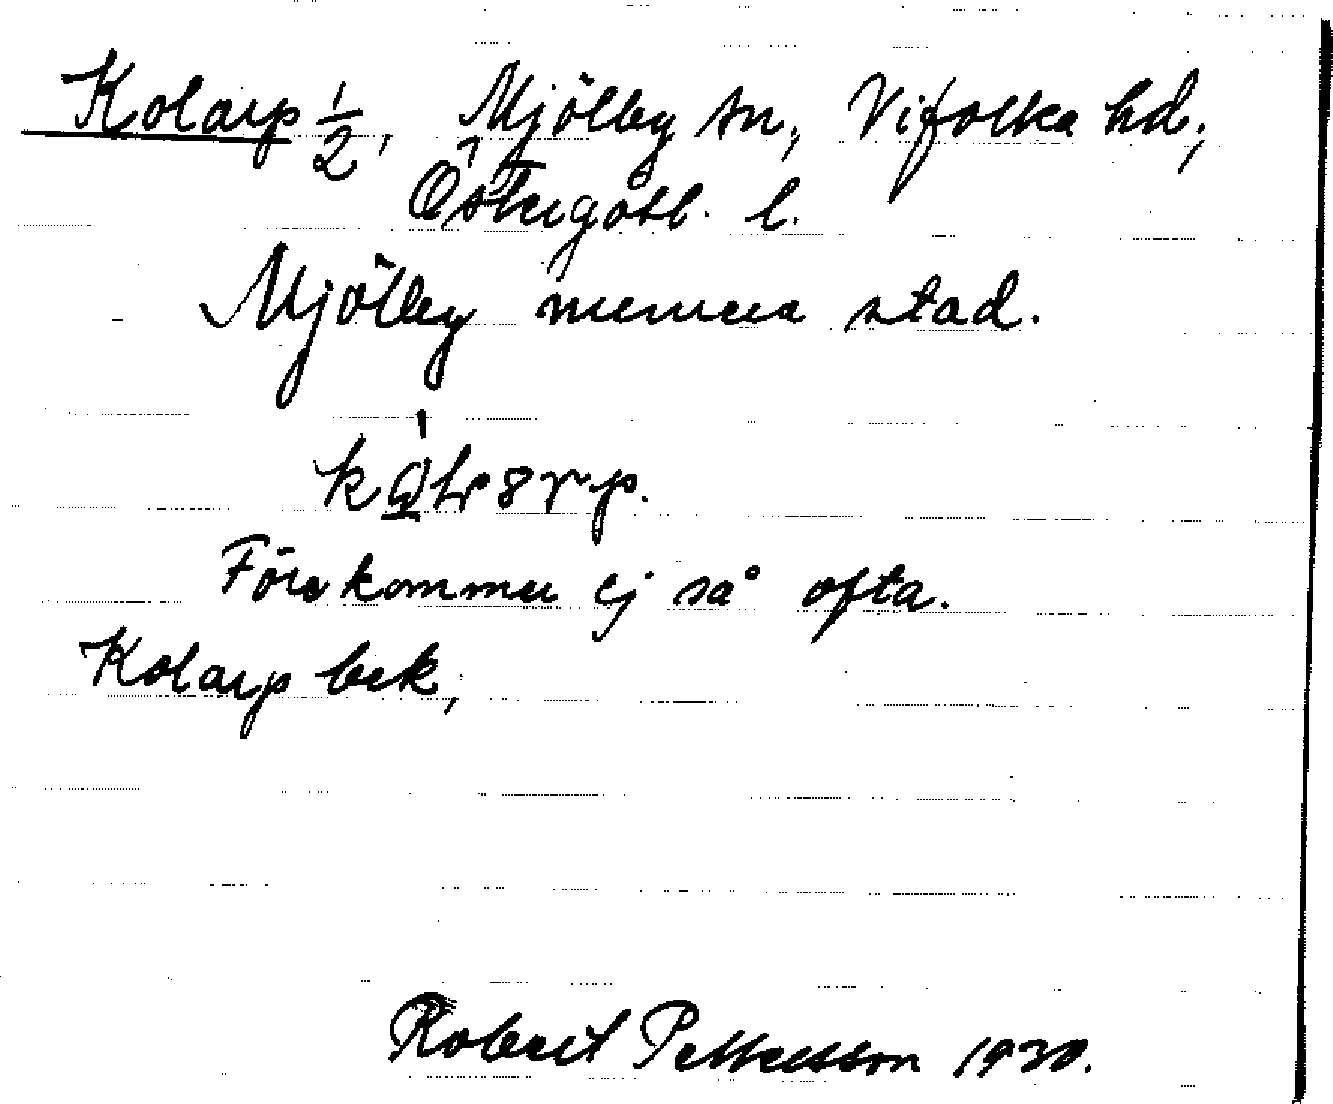 Kolarp 1/2, Mjölby sn, Vifolka hd,
Östergötl. l.
Mjölby numera stad.
Förekommer ej så ofta.
Kolarp bek,
Robert Pettersson 1930.